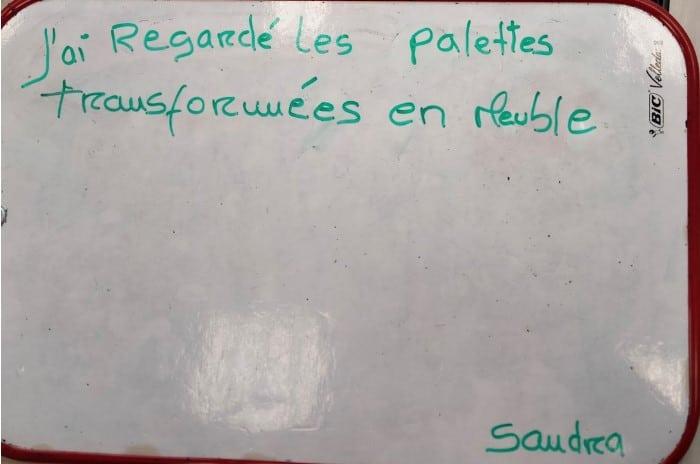 J'ai Regardé les palettes
transformées en Meuble
BIC Velleda
Sandra